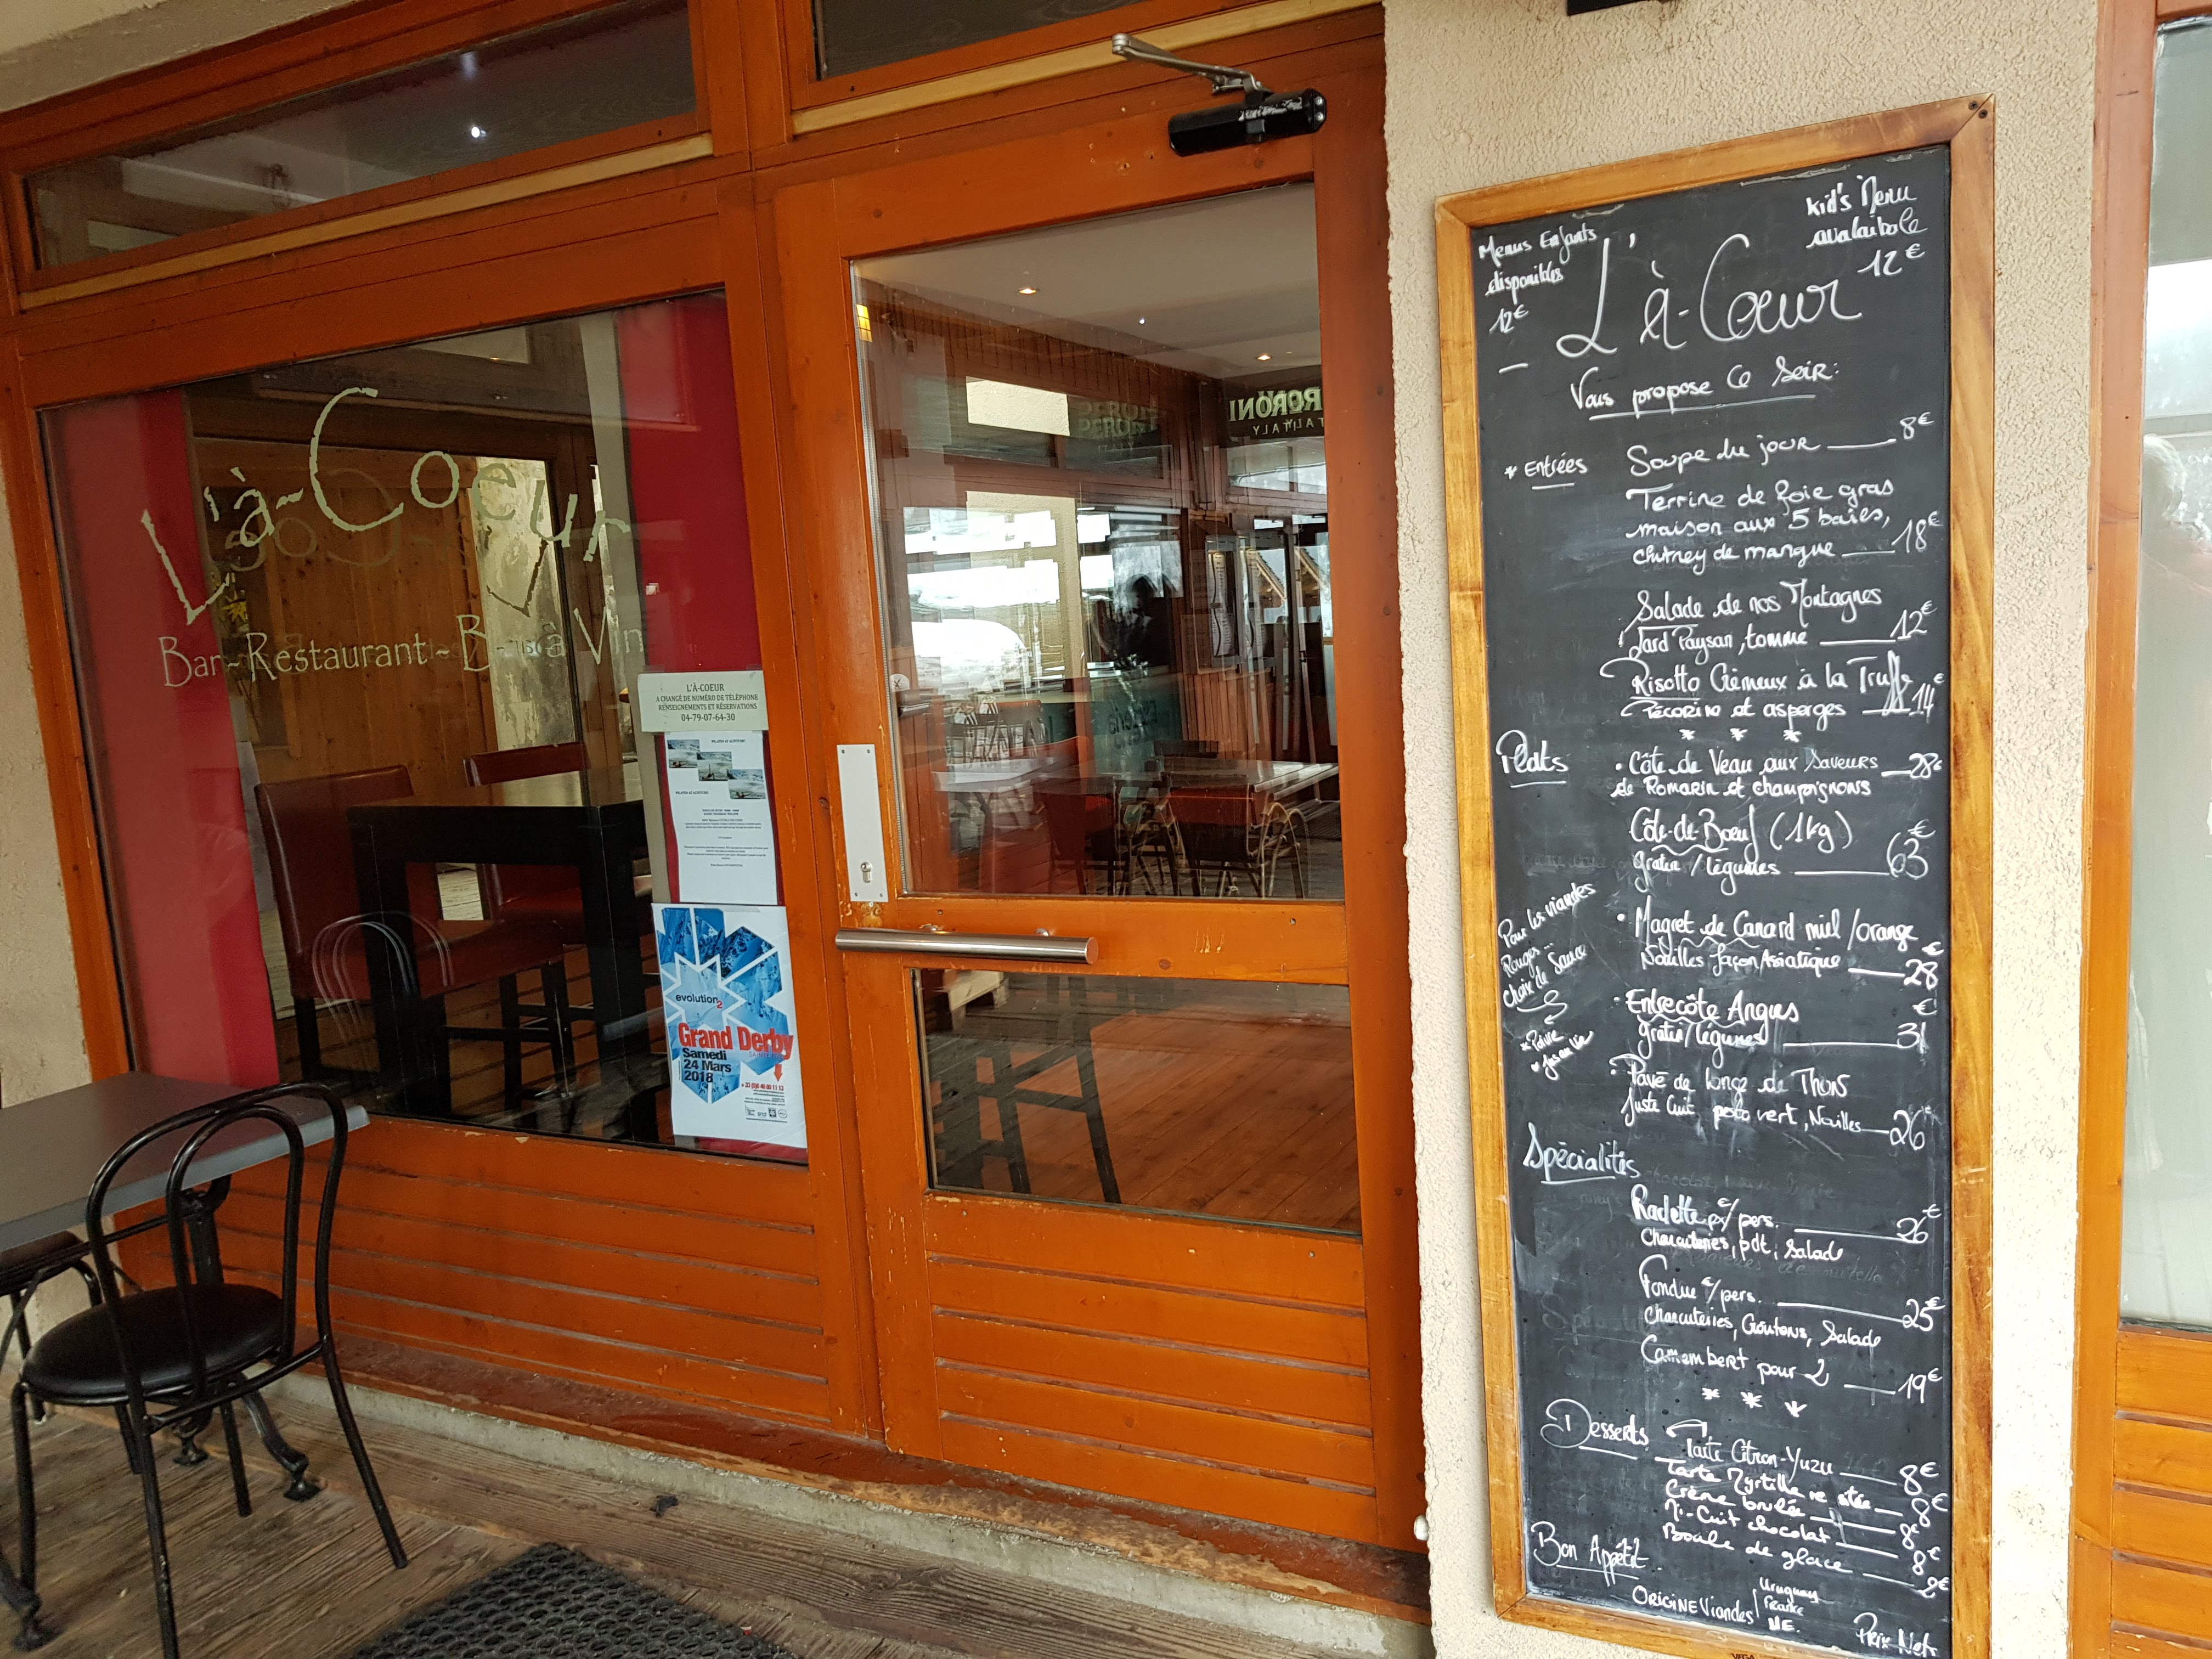 L'à-Coeur
Bar-Restaurant-
à Vin
L'À-COEUR
A CHANGÉ DE NUMÉRO DE TÉLÉPHONE
RENSEIGNEMENTS ET RÉSERVATIONS
04-79-07-64-30
evolution2
Grand Derby
Samedi
24 Mars
2018
Menus Enfants
disponibles
12€
Kid's Menu
avalaibole
12€
L'à-Coeur
Vous propose Ce Soir:
* Entrées
Soupe du jour 8€
Terrine de foie gras
maison aux 5 baies,
chutney de mangue 18€
Salade de nos Montagnes
Lard Paysan, tomme 12€
Risotto Crémeux à la Truffe
Pécorino et asperges 14€
* * *
Plats
• Côte de Veau aux Saveurs 28€
de Romarin et champignons
Côte de Boeuf (1kg)
gratin/légumes 63€
• Magret de Canard miel/orange
Nouilles façon Asiatique 28€
Pour les viandes
Rouges...
Choix de Sauce
* Poivre
• Entrecôte Angus
gratin/légumes 31€
• Pavé de longe de Thon
Juste Cuit, pesto vert, Nouilles 26€
Spécialités
Raclette px/pers. 26€
Charcuteries, pdt, Salade
Fondue €/pers. 25€
Charcuteries, Croutons, Salade
Camembert pour 2 19€
* * *
Desserts
Tarte Citron-Yuzu 8€
Tarte Myrtille 8€
Crème brulée 8€
Mi-Cuit chocolat 8€
Boule de glace 2€
Bon Appétit
ORIGINE Viandes
Uruguay
France
UE.
Prix Nets